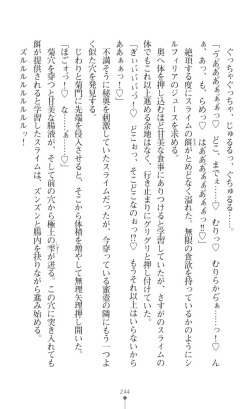 ぐっちゃぐっちゃ、じゅるるっ、ぐちゅるる……。
「っあああぁぁぁっ！♡　どこ、までぇ……♡　むりっ♡　むりらからぁっ♡　ん
あっ、も、らめっ♡　はああああぁぁぁぁぁ！♡」
絶頂する度にスライムの餌がとめどなく溢れた。無限の食欲を持っているかのようにシ
ルフィリアのジュースを求める。
奥へ体を押し込むほど甘美な食事にありつけると学習していたが、さすがのスライムの
体でもこれ以上進める余地はなく、行き止まりにグリグリと押し付けていた。
「ぎぃぃぃっ♡　どこぉっ、そこどこなのぉっ!?♡　もうそれ以上はいらないから
ああぁぁっ！♡」
不満そうに秘奥を刺激していたスライムだったが、今穿っている蜜壺の隣にもう一つよ
く似た穴を発見する。
じわりと菊門に先端を侵入させると、そこから体積を増やして無理矢理押し開いた。
「ほごォっ？♡　な……ぁっ♡」
菊穴を穿つと甘美な腸液が、そして前の穴から極上の雫が迸る。この穴に突き入れても
餌が提供されると学習したスライムは、ズンズンと腸内を抉りながら進み始める。
ズルルルルルルルッ！
244